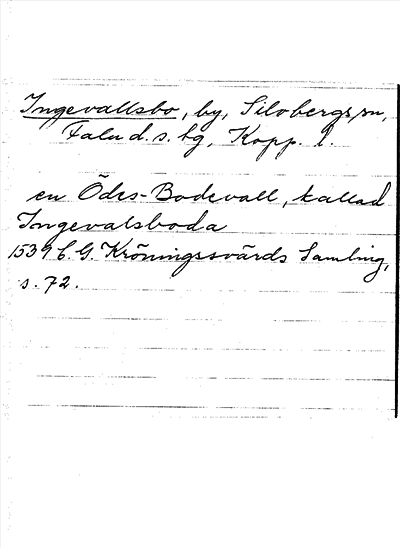 Ingevallsbo, by, Silvbergs sn,
Falu d. s. tg, Kopp. l.
en Ödes-Bodevall, kallad
Ingevalsboda
1539 C. G. Kröningssvärds Samling,
s. 72.